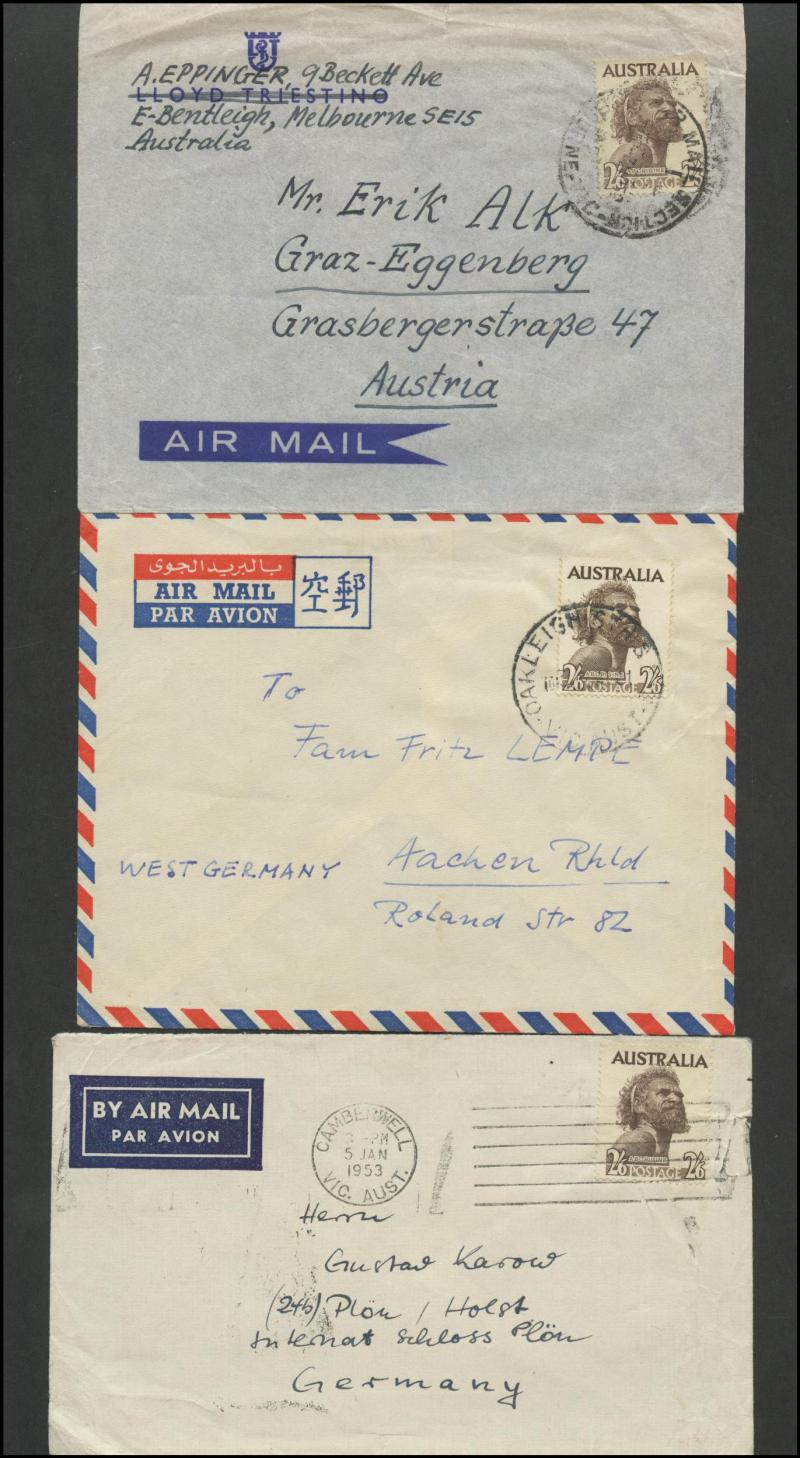 A. EPPINGER, 9 Beckett Ave
LLOYD TRIESTINO
E-Bentleigh, Melbourne SE15
Australia
AUSTRALIA
2/6 POSTAGE 2/6
MAIL SECTION
Mr. Erik Alk
Graz-Eggenberg
Grasbergerstraße 47
Austria
AIR MAIL
بالبريد الجوى
AIR MAIL
PAR AVION
空郵
AUSTRALIA
2/6 POSTAGE 2/6
OAKLEIGH
To
Fam Fritz LEMPE
WEST GERMANY
Aachen Rhld
Roland Str 82
BY AIR MAIL
PAR AVION
CAMBERWELL
PM
5 JAN
1953
VIC. AUST.
AUSTRALIA
ABORIGINE
2/6 POSTAGE 2/6
Herrn
Gustav Karow
(24b) Plön / Holst
Internat Schloss Plön
Germany